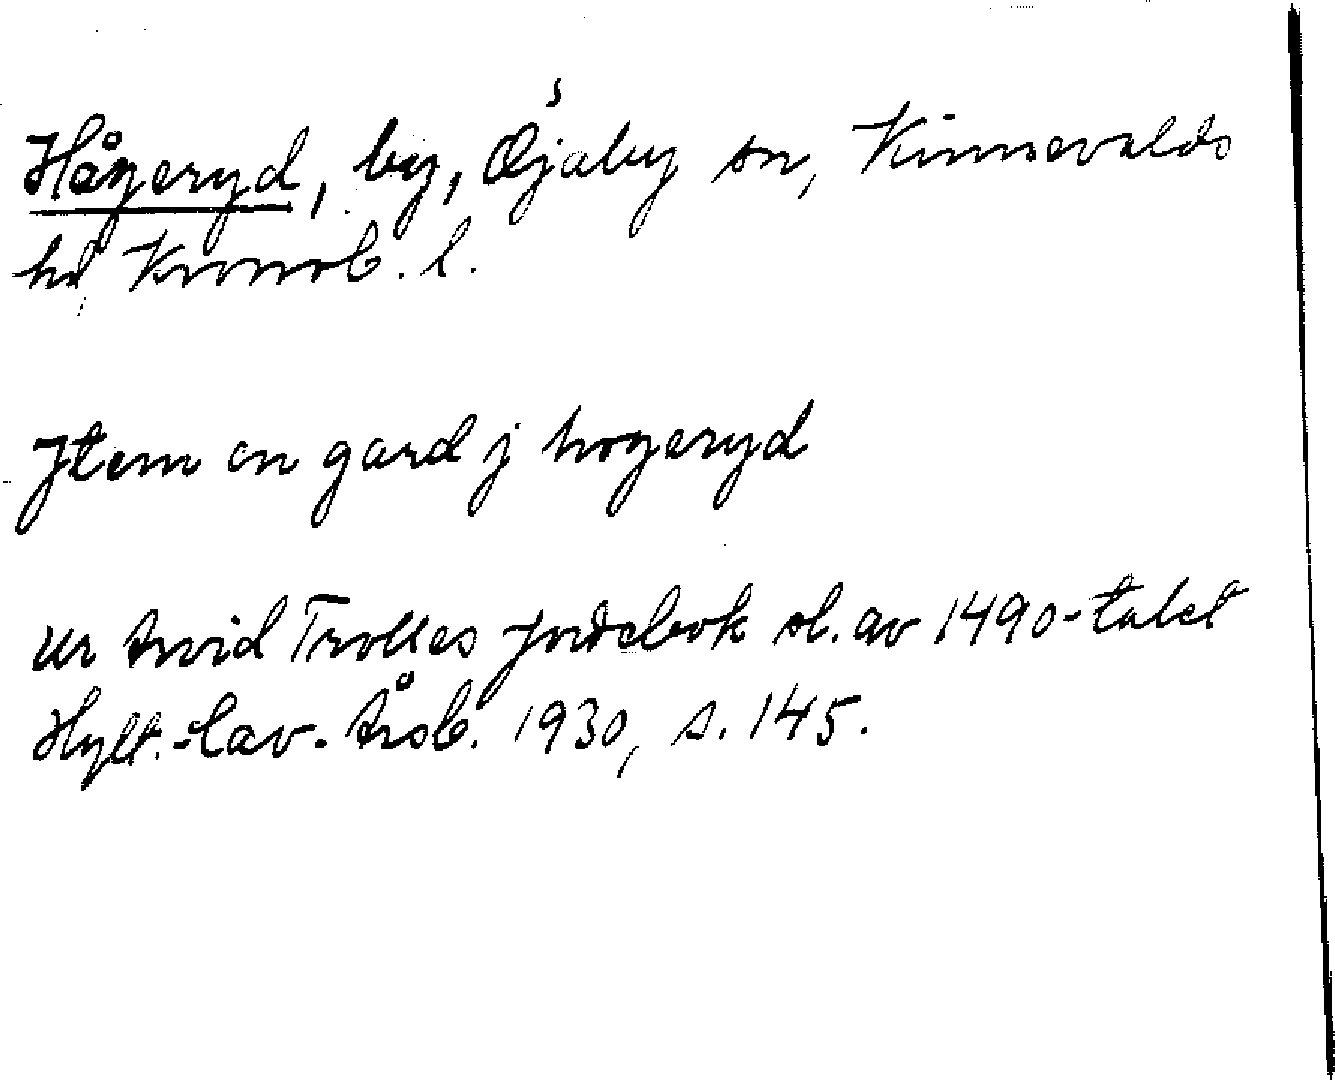 Hågeryd, by, Öjaby sn, Kinnevalds
hd Kronob. l.
Jtem en gard j hogeryd
Ur Arvid Trolles Jordebok sl. av 1490-talet
Hylt.-Cav. Årsb. 1930, s. 145.